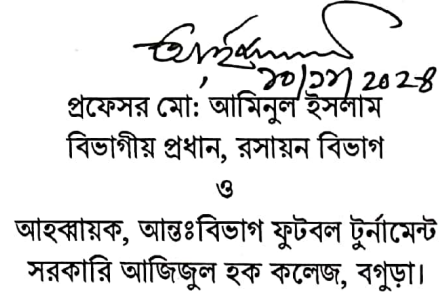 ১০/১১/২০২৪
প্রফেসর মো: আমিনুল ইসলাম
বিভাগীয় প্রধান, রসায়ন বিভাগ
ও
আহব্বায়ক, আন্তঃবিভাগ ফুটবল টুর্নামেন্ট
সরকারি আজিজুল হক কলেজ, বগুড়া।